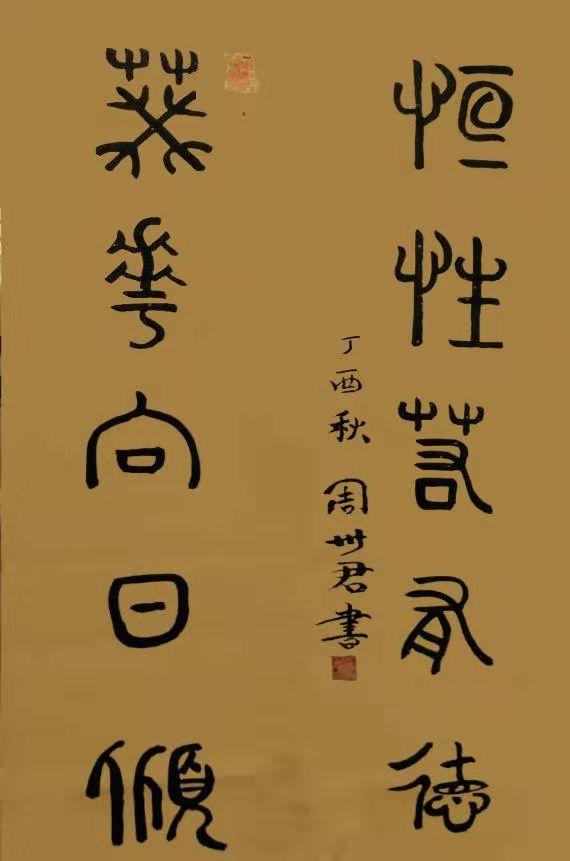 恒性若有德
丁酉秋 周世君書
葵華向日傾